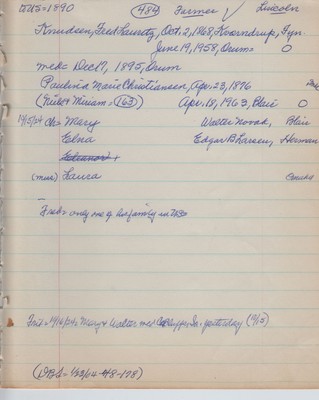 to US = 1890 (484) Farmer Lincoln
Knudsen, Fred Lauritz, Oct. 2, 1868, Koorndrup, Fyn.
June 19, 1958, Orum O
med = Dec 17, 1895, Orum
Paulina Marie Christiansen, Apr. 23, 1876
(Niels + Miriam = (163)) Apr. 18, 1963, Blair O
Ch = Mary Walter Novak, Blair
Elna Edgar B Larsen, Herman
Eleanor
Laura Omaha
Fred = only one of his family in US
Mary + Walter med Ia. yesterday